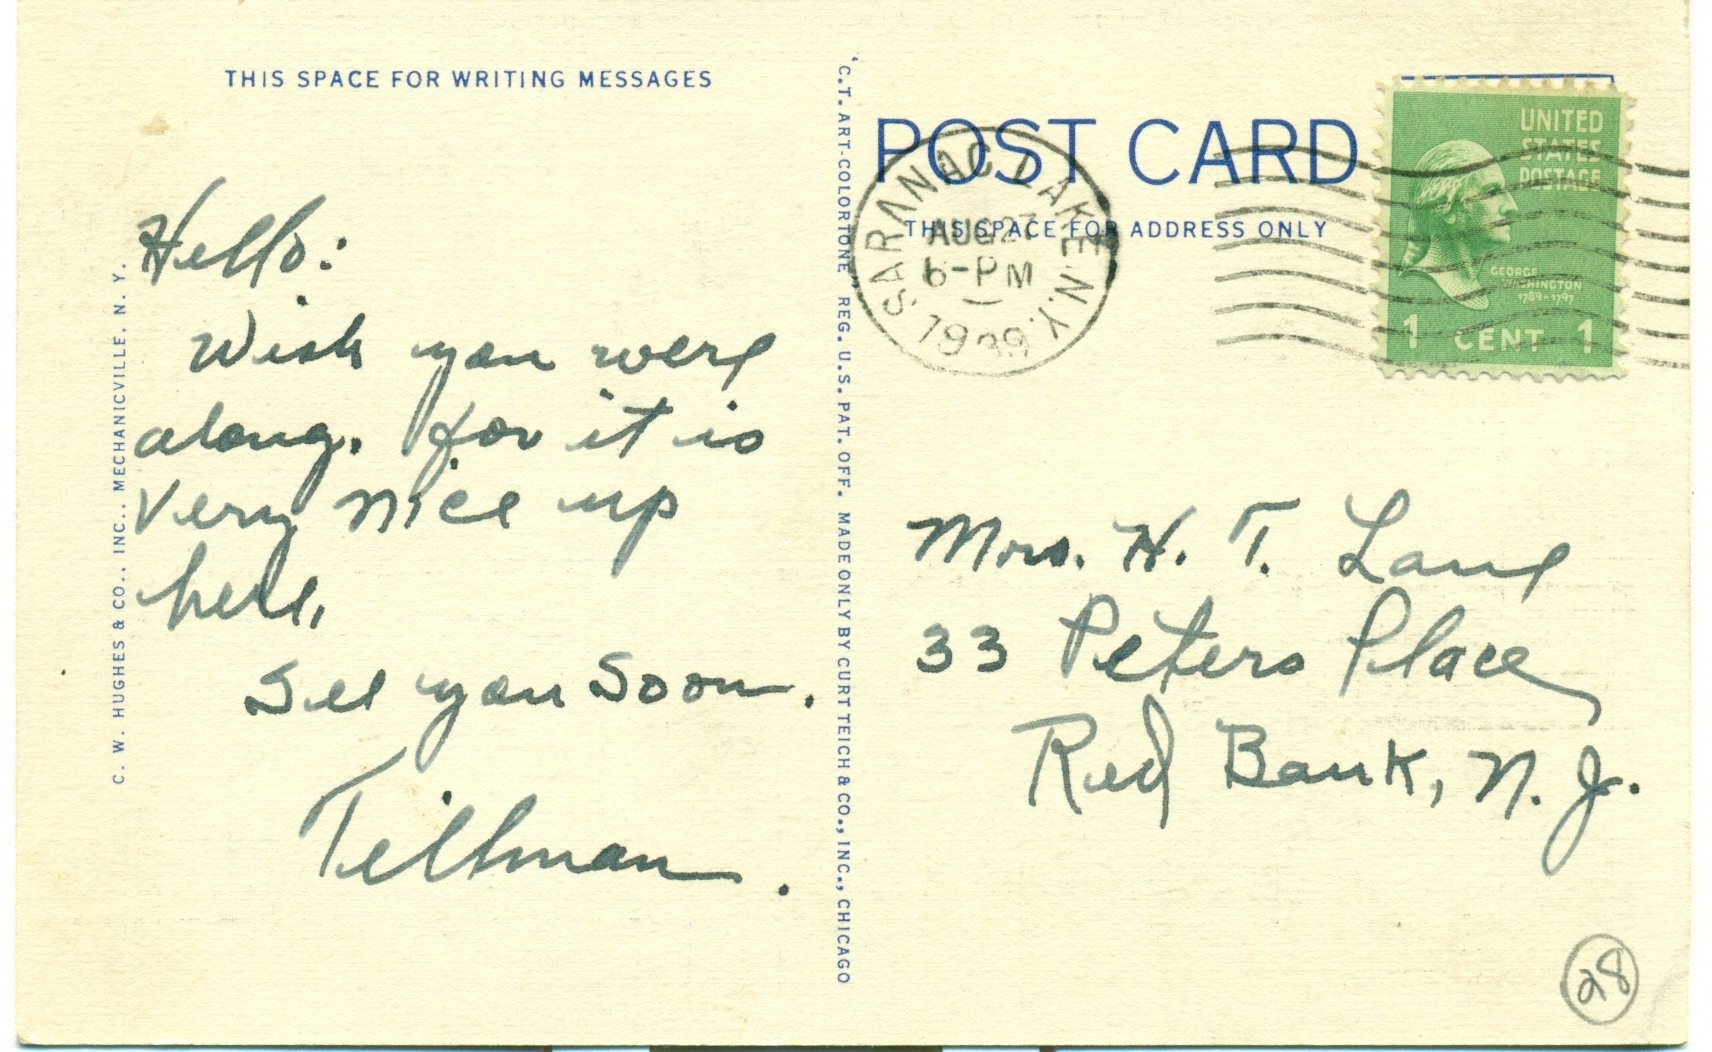 THIS SPACE FOR WRITING MESSAGES
Hello:
Wish you were
along. for it is
very nice up
here.
See you soon.
Tillman.
C. W. HUGHES & CO., INC., MECHANICVILLE, N. Y.
"C.T. ART-COLORTONE" REG. U.S. PAT. OFF. MADE ONLY BY CURT TEICH & CO., INC., CHICAGO
POST CARD
THIS SPACE FOR ADDRESS ONLY
SARANAC LAKE N.Y.
AUG 27
6-PM
1939
UNITED
STATES
POSTAGE
GEORGE
WASHINGTON
1789-1797
1 CENT 1
Mrs. H. T. Lane
33 Peters Place
Red Bank, N. J.
28